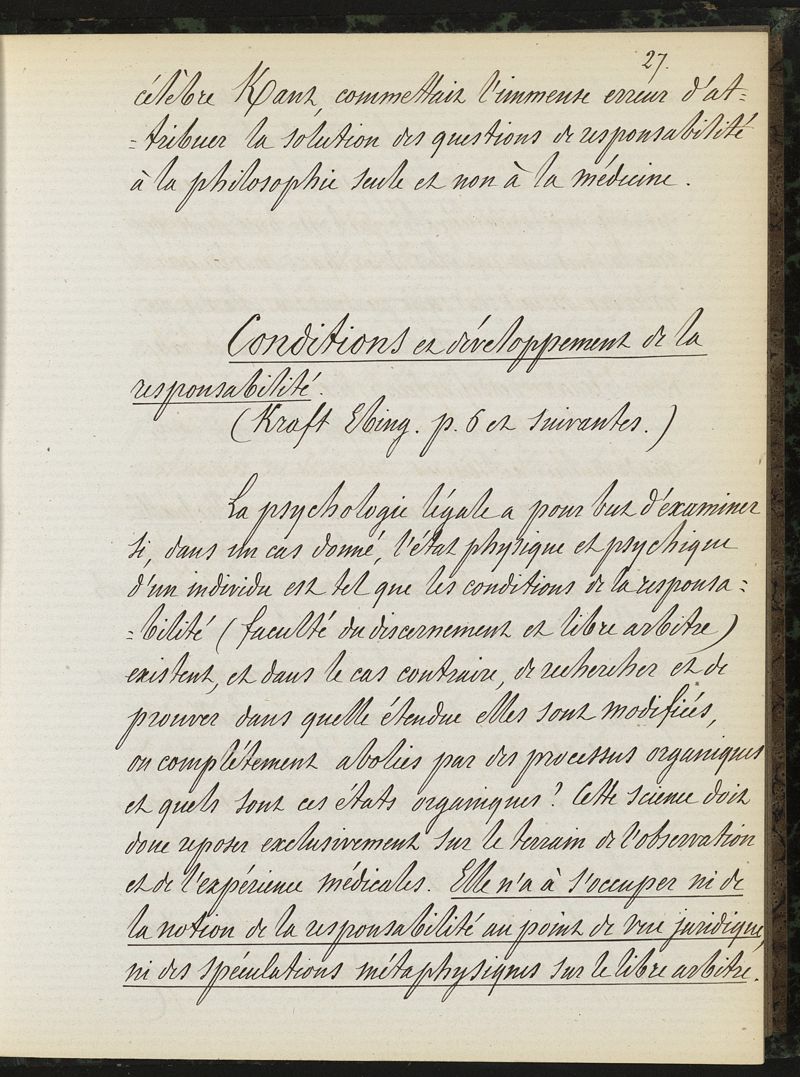 27.
célèbre Kant, commettait l'immense erreur d'at-
=tribuer la solution des questions de responsabilité
à la philosophie seule et non à la médecine.
Conditions et développement de la
responsabilité.
(Kraft Ebing. p. 6 et suivantes.)
La psychologie légale a pour but d'examiner
si, dans un cas donné, l'état physique et psychique
d'un individu est tel que les conditions de la responsa=
=bilité (faculté du discernement et libre arbitre)
existent, et dans le cas contraire, de rechercher et de
prouver dans quelle étendue elles sont modifiées,
ou complétement abolies par des processus organiques
et quels sont ces états organiques? Cette science doit
donc reposer exclusivement sur le terrain de l'observation
et de l'expérience médicales. Elle n'a à s'occuper ni de
la notion de la responsabilité au point de vue juridique,
ni des spéculations métaphysiques sur le libre arbitre.